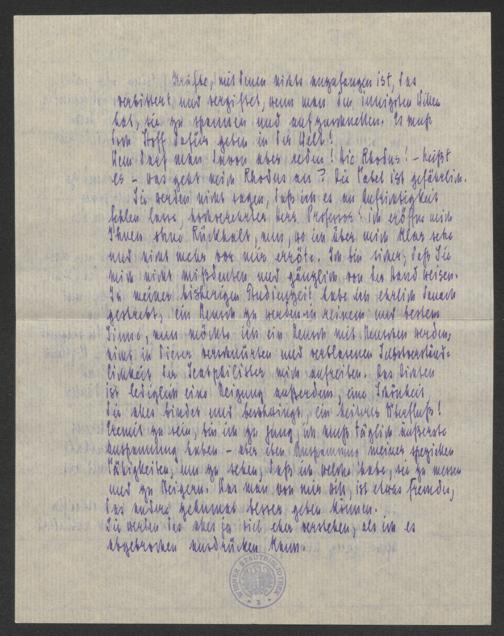 Kräfte, mit denen nichts anzufangen ist, das
verbittert und vergiftet, wenn man den innigsten Willen
hat, sie zu spannen und aufzuschnellen. Es muß
doch Stoff dafür geben in der Welt!
Nun darf man davon aber reden! Hic Rhodus! – heißt
es – was geht mich Rhodus an? Die Fabel ist gefährlich.
Sie werden nicht sagen, daß ich es an Aufrichtigkeit
fehlen lasse, hochverehrter Herr Professor! Ich eröffne mich
Ihnen ohne Rückhalt, nun, wo ich über mich klar sehe
und nicht mehr vor mir erröte. Ich bin sicher, daß Sie
mich nicht mißdeuten und gänzlich von der Hand weisen.
In meiner bisherigen Studienzeit habe ich ehrlich danach
gestrebt, ein Mensch zu werden in reinem und bestem
Sinne, nun möchte ich ein Mensch mit Menschen werden,
nicht in dieser verschnürten und verklommenen Selbstverständ-
lichkeit des
ist lediglich eine Neigung außerdem, eine Schönheit,
die alles bindet und beschwingt, ein heiterer Überfluß!
Eremit zu sein, bin ich zu jung, ich muß täglich äußerste
Anspannung haben – aber eben Anspannung meiner spezifischen
Fähigkeiten, um zu sehen, daß ich welche habe, sie zu messen
und zu steigern. Was man von mir will, ist etwas Fremdes,
das andere gekonnt besser geben können.
Sie werden dies aber ja viel eher verstehen, als ich es
abgebrochen ausdrücken kann.
WIENER STADTBIBLIOTHEK